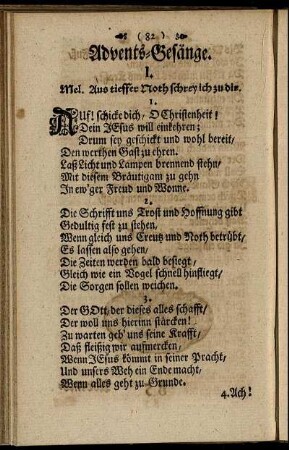 ( 82 )
Advents-Gesänge.
I.
Mel. Aus tieffer Noth schrey ich zu dir.
1.
AUf! schicke dich, O Christenheit!
Dein JEsus will einkehren;
Drum sey geschickt und wohl bereit/
Den werthen Gast zu ehren.
Laß Licht und Lampen brennend stehn/
Mit diesem Bräutigam zu gehn
In ew'ger Freud und Wonne.
2.
Die Schrifft uns Trost und Hoffnung gibt
Gedultig fest zu stehen,
Wenn gleich uns Creutz und Noth betrübt/
Es lassen also gehen,
Die Zeiten werden bald besiegt/
Gleich wie ein Vogel schnell hinfliegt/
Die Sorgen sollen weichen.
3.
Der GOtt/ der dieses alles schafft/
Der woll uns hierinn stärcken!
Zu warten geb' uns seine Krafft/
Daß fleißig wir aufmercken/
Wenn JEsus kömmt in seiner Pracht/
Und unsers Weh ein Ende macht/
Wenn alles geht zu Grunde.
4. Ach!